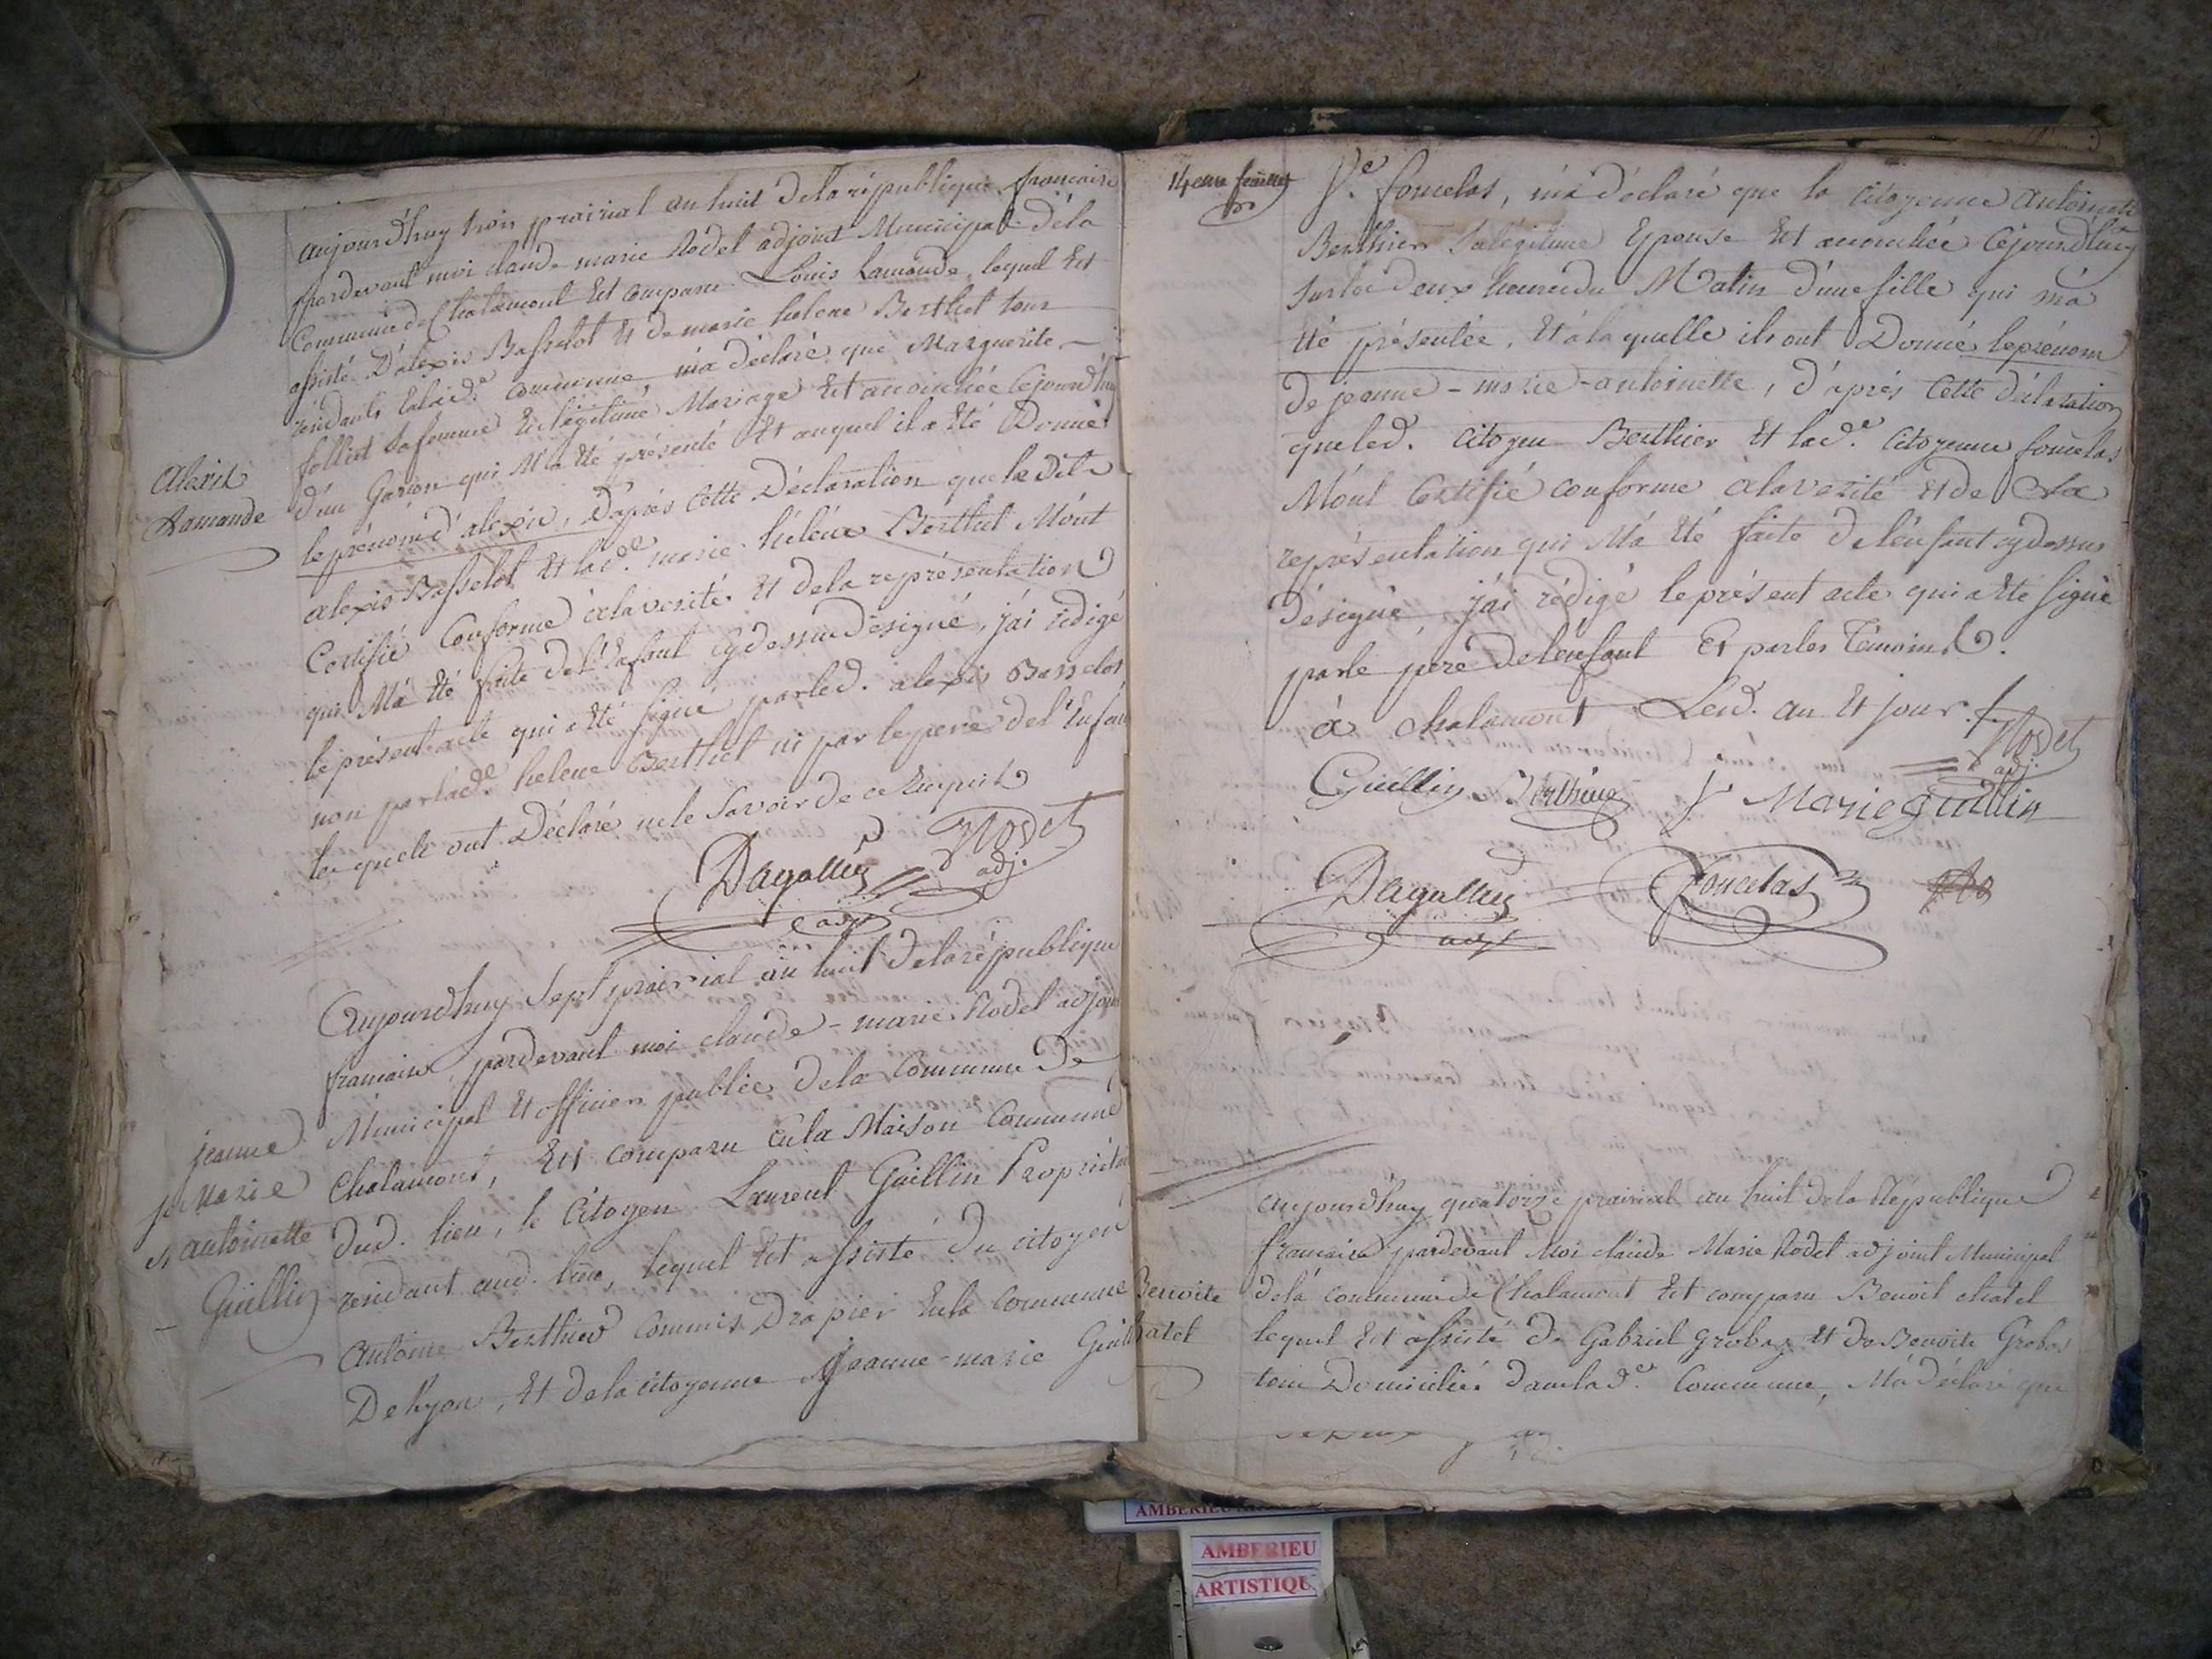 aujourd'huy trois prairial an huit de la république francaise
pardevant moi claude marie Nodet adjoint Municipal de la
Commune de Chalamont Est comparu Louis Lamande lequel Est
assisté D'alexis Basselot Et de marie helene Berthet tous
résidants En lad.e commune, m'a déclaré que Marguerite
sa femme En légitime Mariage Est accouchée Cejourd'huy
d'un Garcon qui M'a Eté présenté Et auquel il a Eté Donné
le prénom d'alexis, D'aprés Cette Déclaration que le Dit
alexis Basselot Et lad.e marie héléne Berthet M'ont
Certifié Conforme a la verité Et de la représentation
qui M'a Eté faite de l'Enfant Cy dessus désigné, j'ai rédigé
le présent acte qui a Eté signé par led. alexis Basselot
non par lad.e helene Berthet ni par le pere de l'Enfant
lesquels ont Déclaré ne le Savoir de ce Enquis
Alexis
Lamande
Dagallier
Nodet
adj.
Aujourdhuy Sept prairial an huit de la république
francaise pardevant moi claude-marie Nodet adjoint
Municipal Et officier public de la Commune De
Chalamont, Est comparu En la Maison Commune
dud. lieu, le Citoyen Laurent Guillin Propriétaire
résidant aud. lieu, lequel Est assisté du citoyen
Antoine Berthier Commis Drapier En la Commune
De Lyon, Et de la citoyenne jeanne-marie Guillin
jeanne
Marie
antoinette
Guillin
14eme feuillet
V.e foncelas, m'a déclaré que la Citoyenne antoinette
Berthier Sa légitime Epouse Est accouchée Cejourd'huy
Sur les deux heures du Matin d'une fille qui m'a
Eté présentée, Et a la quelle ils ont Donné le prénom
De jeanne-marie-antoinette, d'aprés Cette déclaration
que led. Citoyen Berthier Et lad.e Citoyenne foncelas
M'ont Certifié conforme a la verité Et de La
représentation qui M'a Eté faite de l'enfant cy dessus
désigné j'ai rédigé le présent acte qui a Eté signé
par le pere de l'enfant Et par les Temoins.
à chalamont Led. an Et jour.
Nodet
adj.
Guillin Berthier V Marie guillin
Dagallier Foncelas
adjt
aujourd'huy quatorze prairial an huit de la République
francaise pardevant Moi claude Marie Nodet adjoint Municipal
de la commune de Chalamont Est comparu Benoit chatel
lequel Est assisté de Gabriel Grobaz Et de Benoite Grobos
tous Domiciliés dans lad.e Commune, M'a déclaré que
Benoite
chatel
AMBERIEU
AMBERIEU
ARTISTIQU